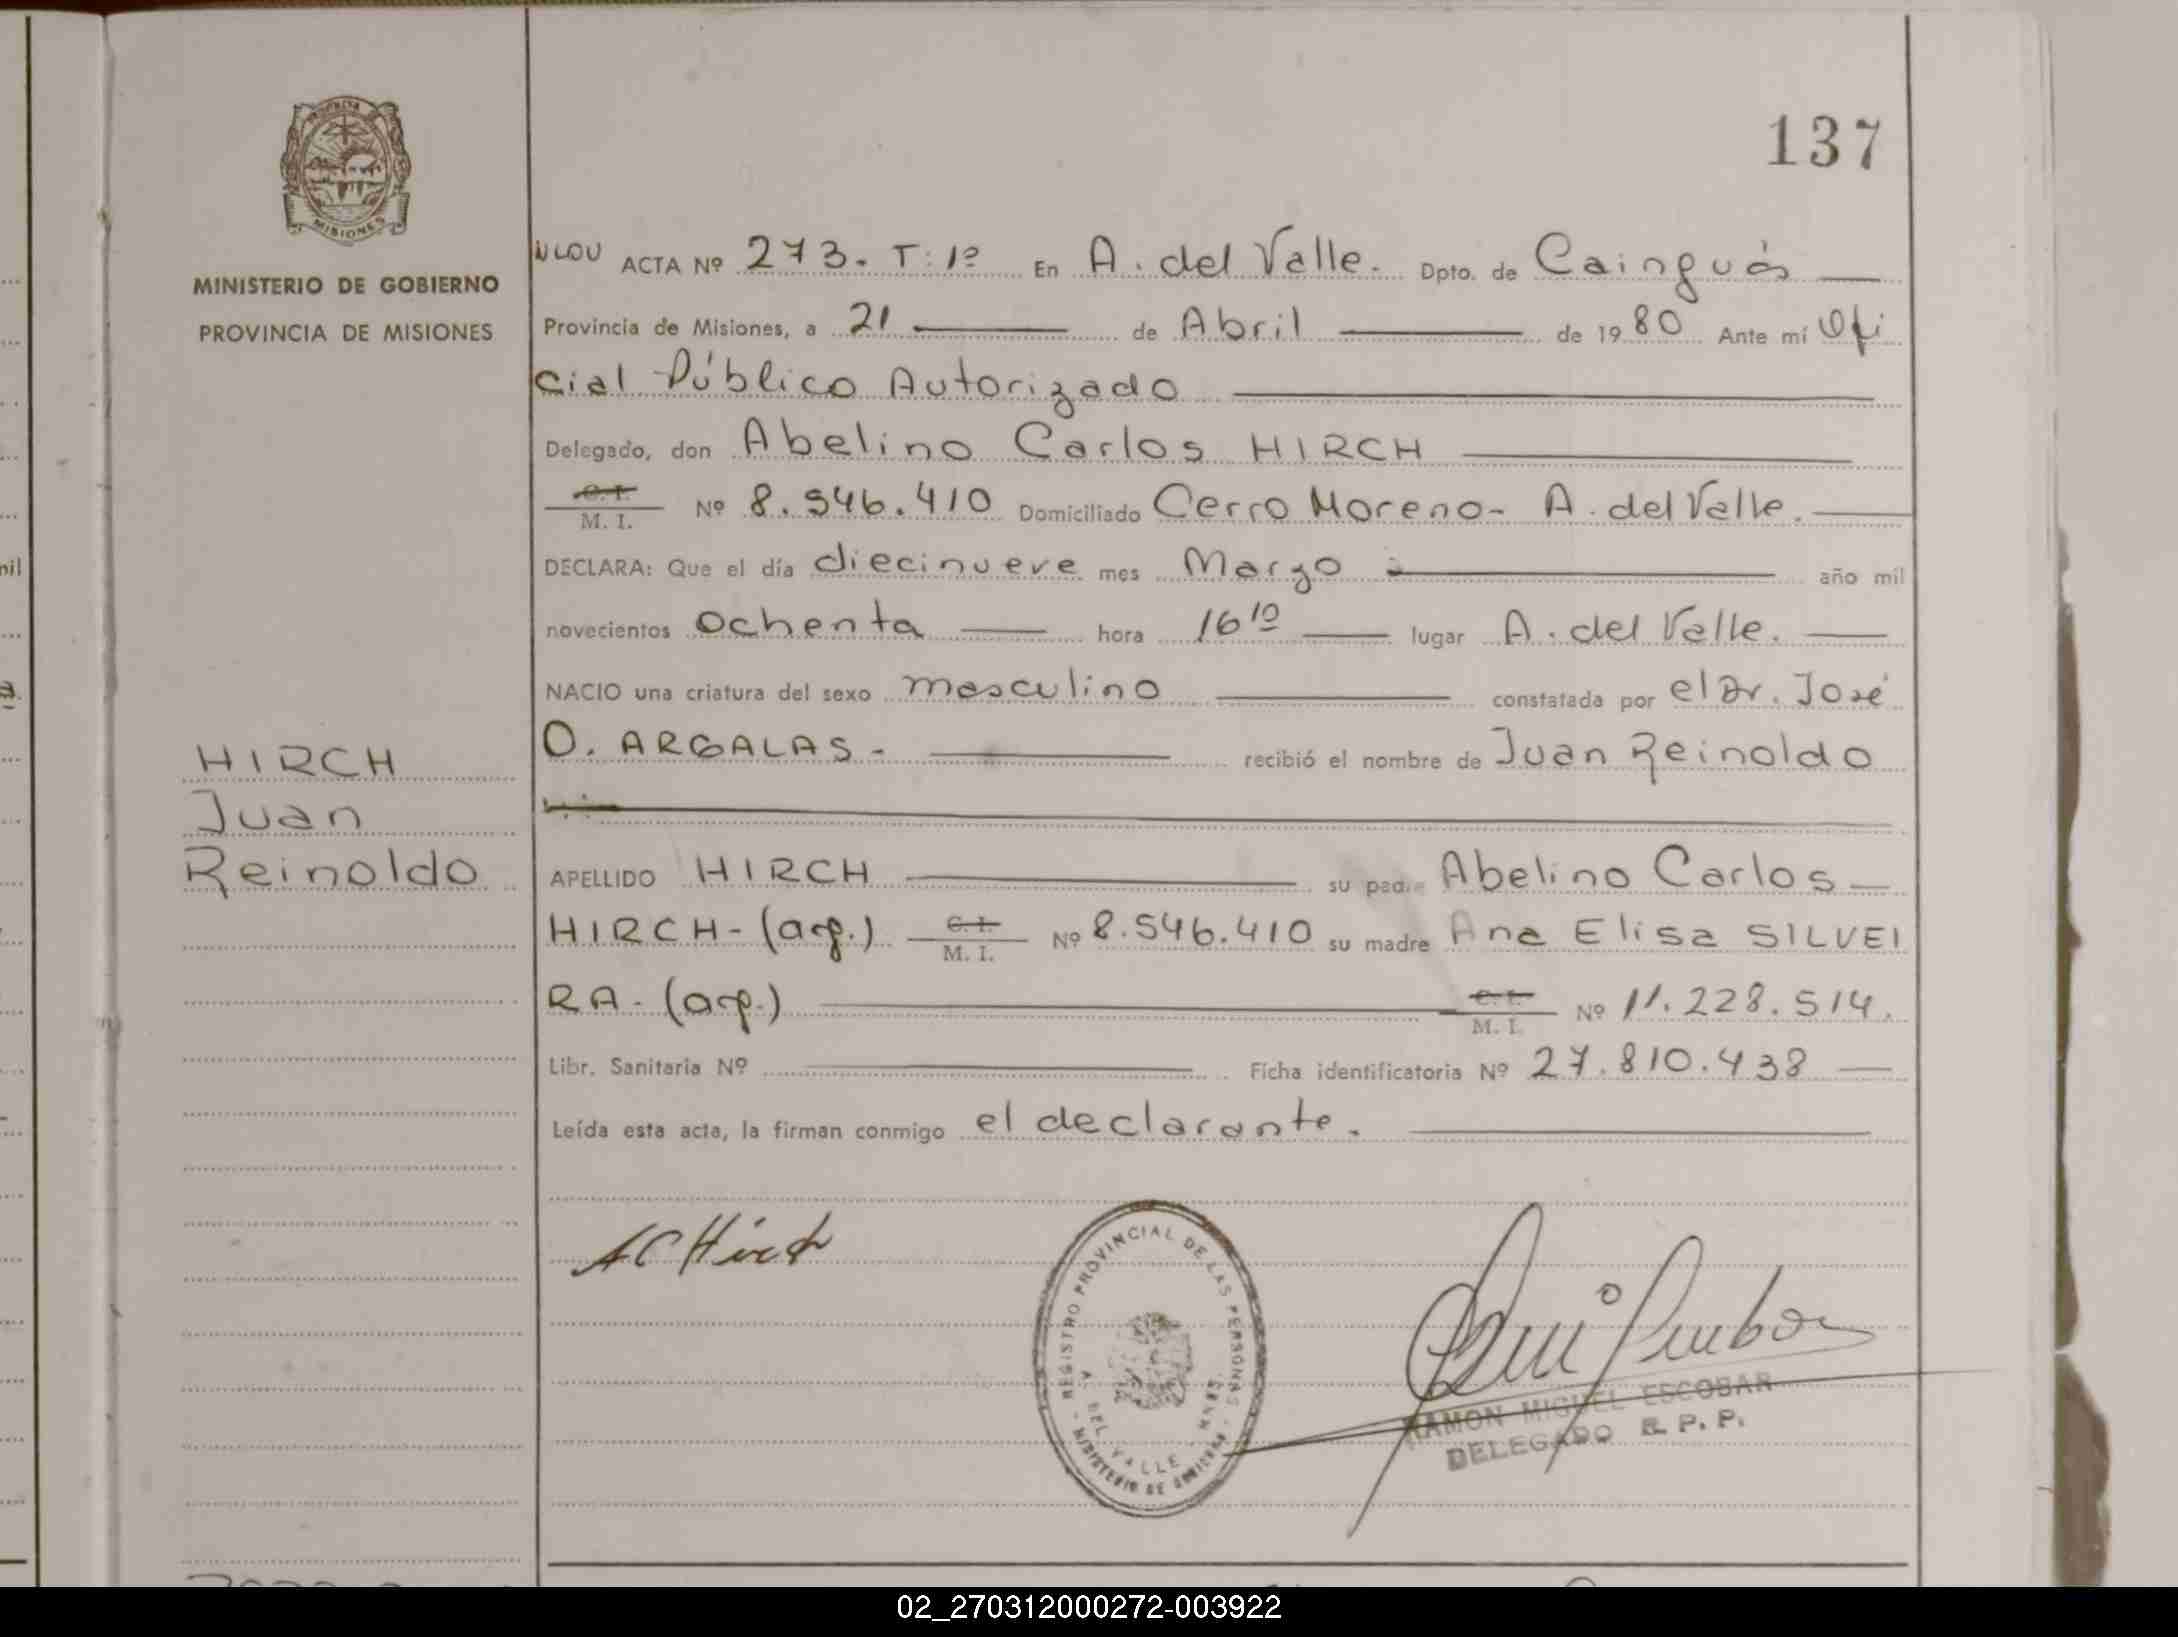 137
MINISTERIO DE GOBIERNO
PROVINCIA DE MISIONES
HIRCH
Juan
Reinoldo
ACTA Nº 273. T: 1º En A. del Valle. Dpto. de Cainguás
Provincia de Misiones, a 21 de Abril de 1980 Ante mí Ofi
cial Público Autorizado
Delegado, don Abelino Carlos HIRCH
C. I.
M. I. Nº 8.546.410 Domiciliado Cerro Moreno- A. del Valle.
DECLARA: Que el día diecinueve mes Marzo año mil
novecientos ochenta hora 16 10 lugar A. del Valle.
NACIO una criatura del sexo masculino constatada por el Dr. José
O. ARGALAS- recibió el nombre de Juan Reinoldo
APELLIDO HIRCH su padre Abelino Carlos
HIRCH- (arg.) C. I. M. I. Nº 8.546.410 su madre Ana Elisa SILVEI
RA- (arg.) C. I. M. I. Nº 11.228.514.
Libr. Sanitaria Nº Ficha identificatoria Nº 27.810.438
Leída esta acta, la firman conmigo el declarante.
AC Hirch
REGISTRO PROVINCIAL DE LAS PERSONAS
A. DEL VALLE - MNES.
MINISTERIO DE GOBIERNO
RAMON MIGUEL ESCOBAR
DELEGADO R. P. P.
02_270312000272-003922